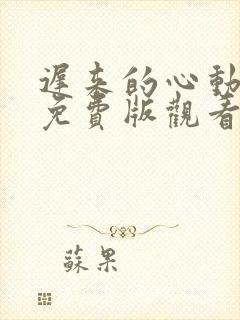 遲來的心動
免費版觀看
蘇果